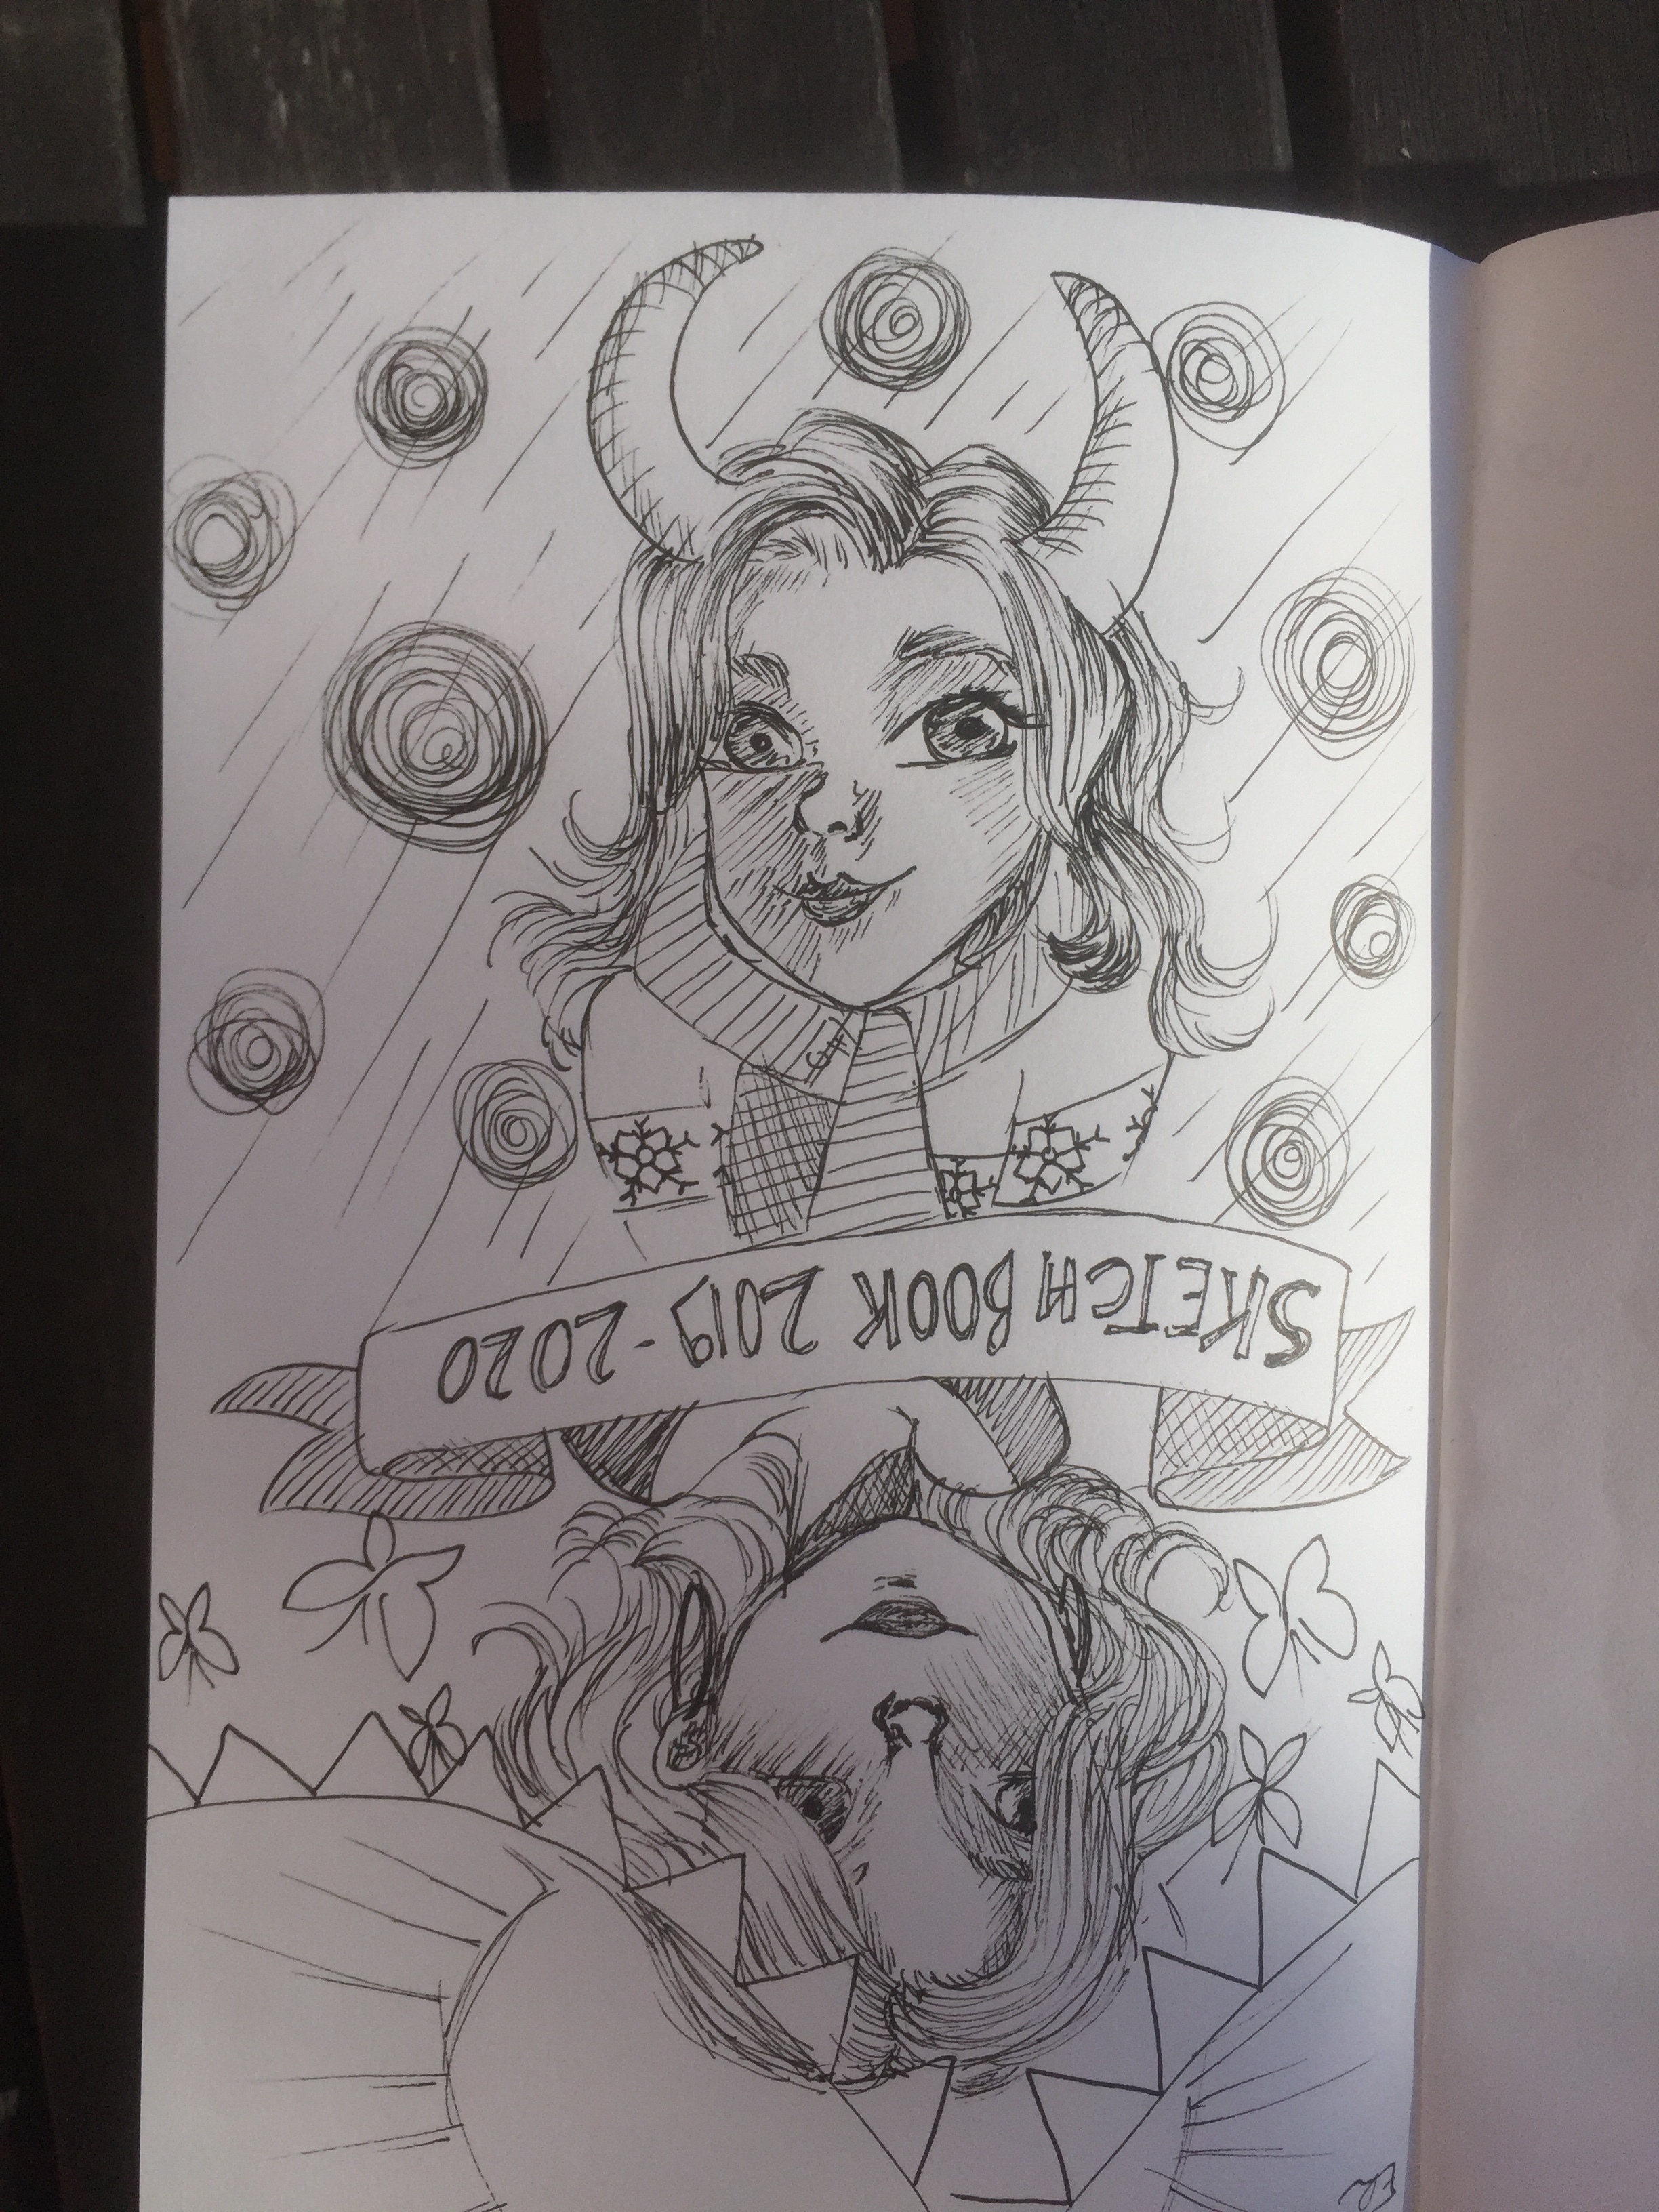 SKETCH BOOK 2019-2020